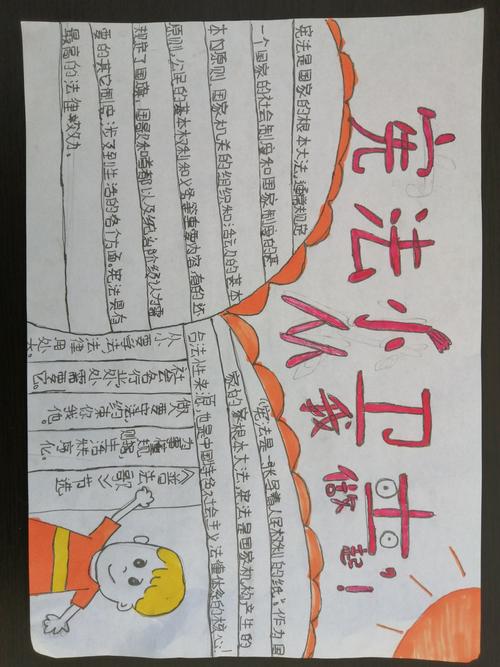 宪法小卫士
从我做起!
宪法是国家的根本大法,通常规定
一个国家的社会制度和国家制度的基
本的原则,国家机关的组织和活动的基本
原则,公民的基本权利和义务等重要内容,有的还
规定了国旗、国歌和首都以及统治阶级认为重
要的其它制度,涉及到生活的各个方面。宪法具有
最高的法律效力。
《宪法是一张写着人民权利的纸》,作为国
家的家根本大法,宪法是国家机构产生的
合法性来源,也是中国特色社会主义法律体系的核心!
小要学法法律用处大。
社会各行业处处需要它。
做要守法约束你我他。
生活
《普法歌》节选